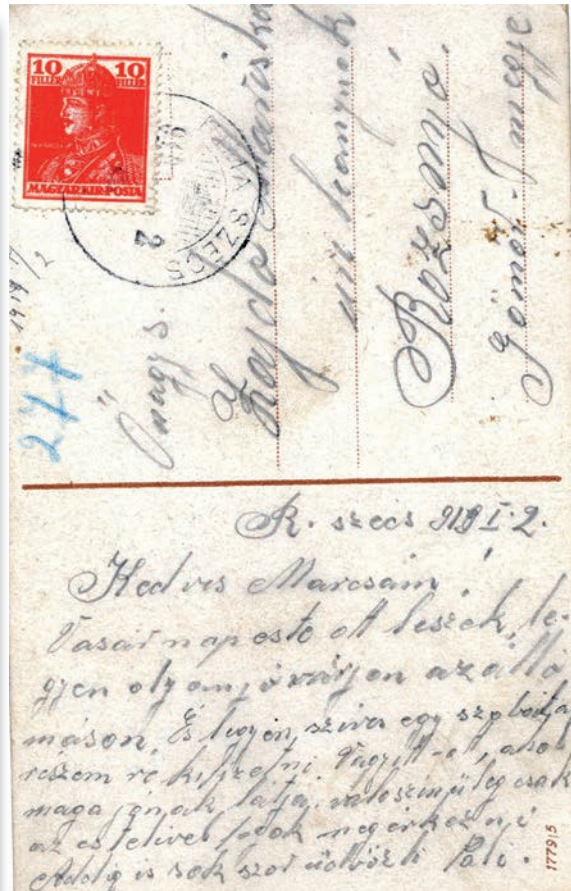 10 10
FILLÉR FILLÉR
MAGYAR KIR. POSTA
SZÉCS
2
277
Őnagys.
Lajdo Mariska
úrleánynak
Rozsnyó.
Gömör-megye
R. szécs 919 I. 2.
Kedves Marcsám!
Vasárnap este ott leszek, le-
gyen oly jó várjon az állo
máson, És legyen szíves egy
részemre
maga jónak látja, valószínüleg csak
az estelivel fogok megérkezni
Addig is sokszor üdvözli Pali.
1779|5